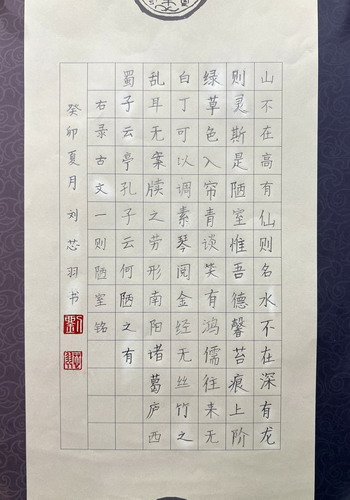 山不在高有仙则名水不在深有龙
则灵斯是陋室惟吾德馨苔痕上阶
绿草色入帘青谈笑有鸿儒往来无
白丁可以调素琴阅金经无丝竹之
乱耳无案牍之劳形南阳诸葛庐西
蜀子云亭孔子云何陋之有
右录古文一则陋室铭
癸卯夏月刘芯羽书